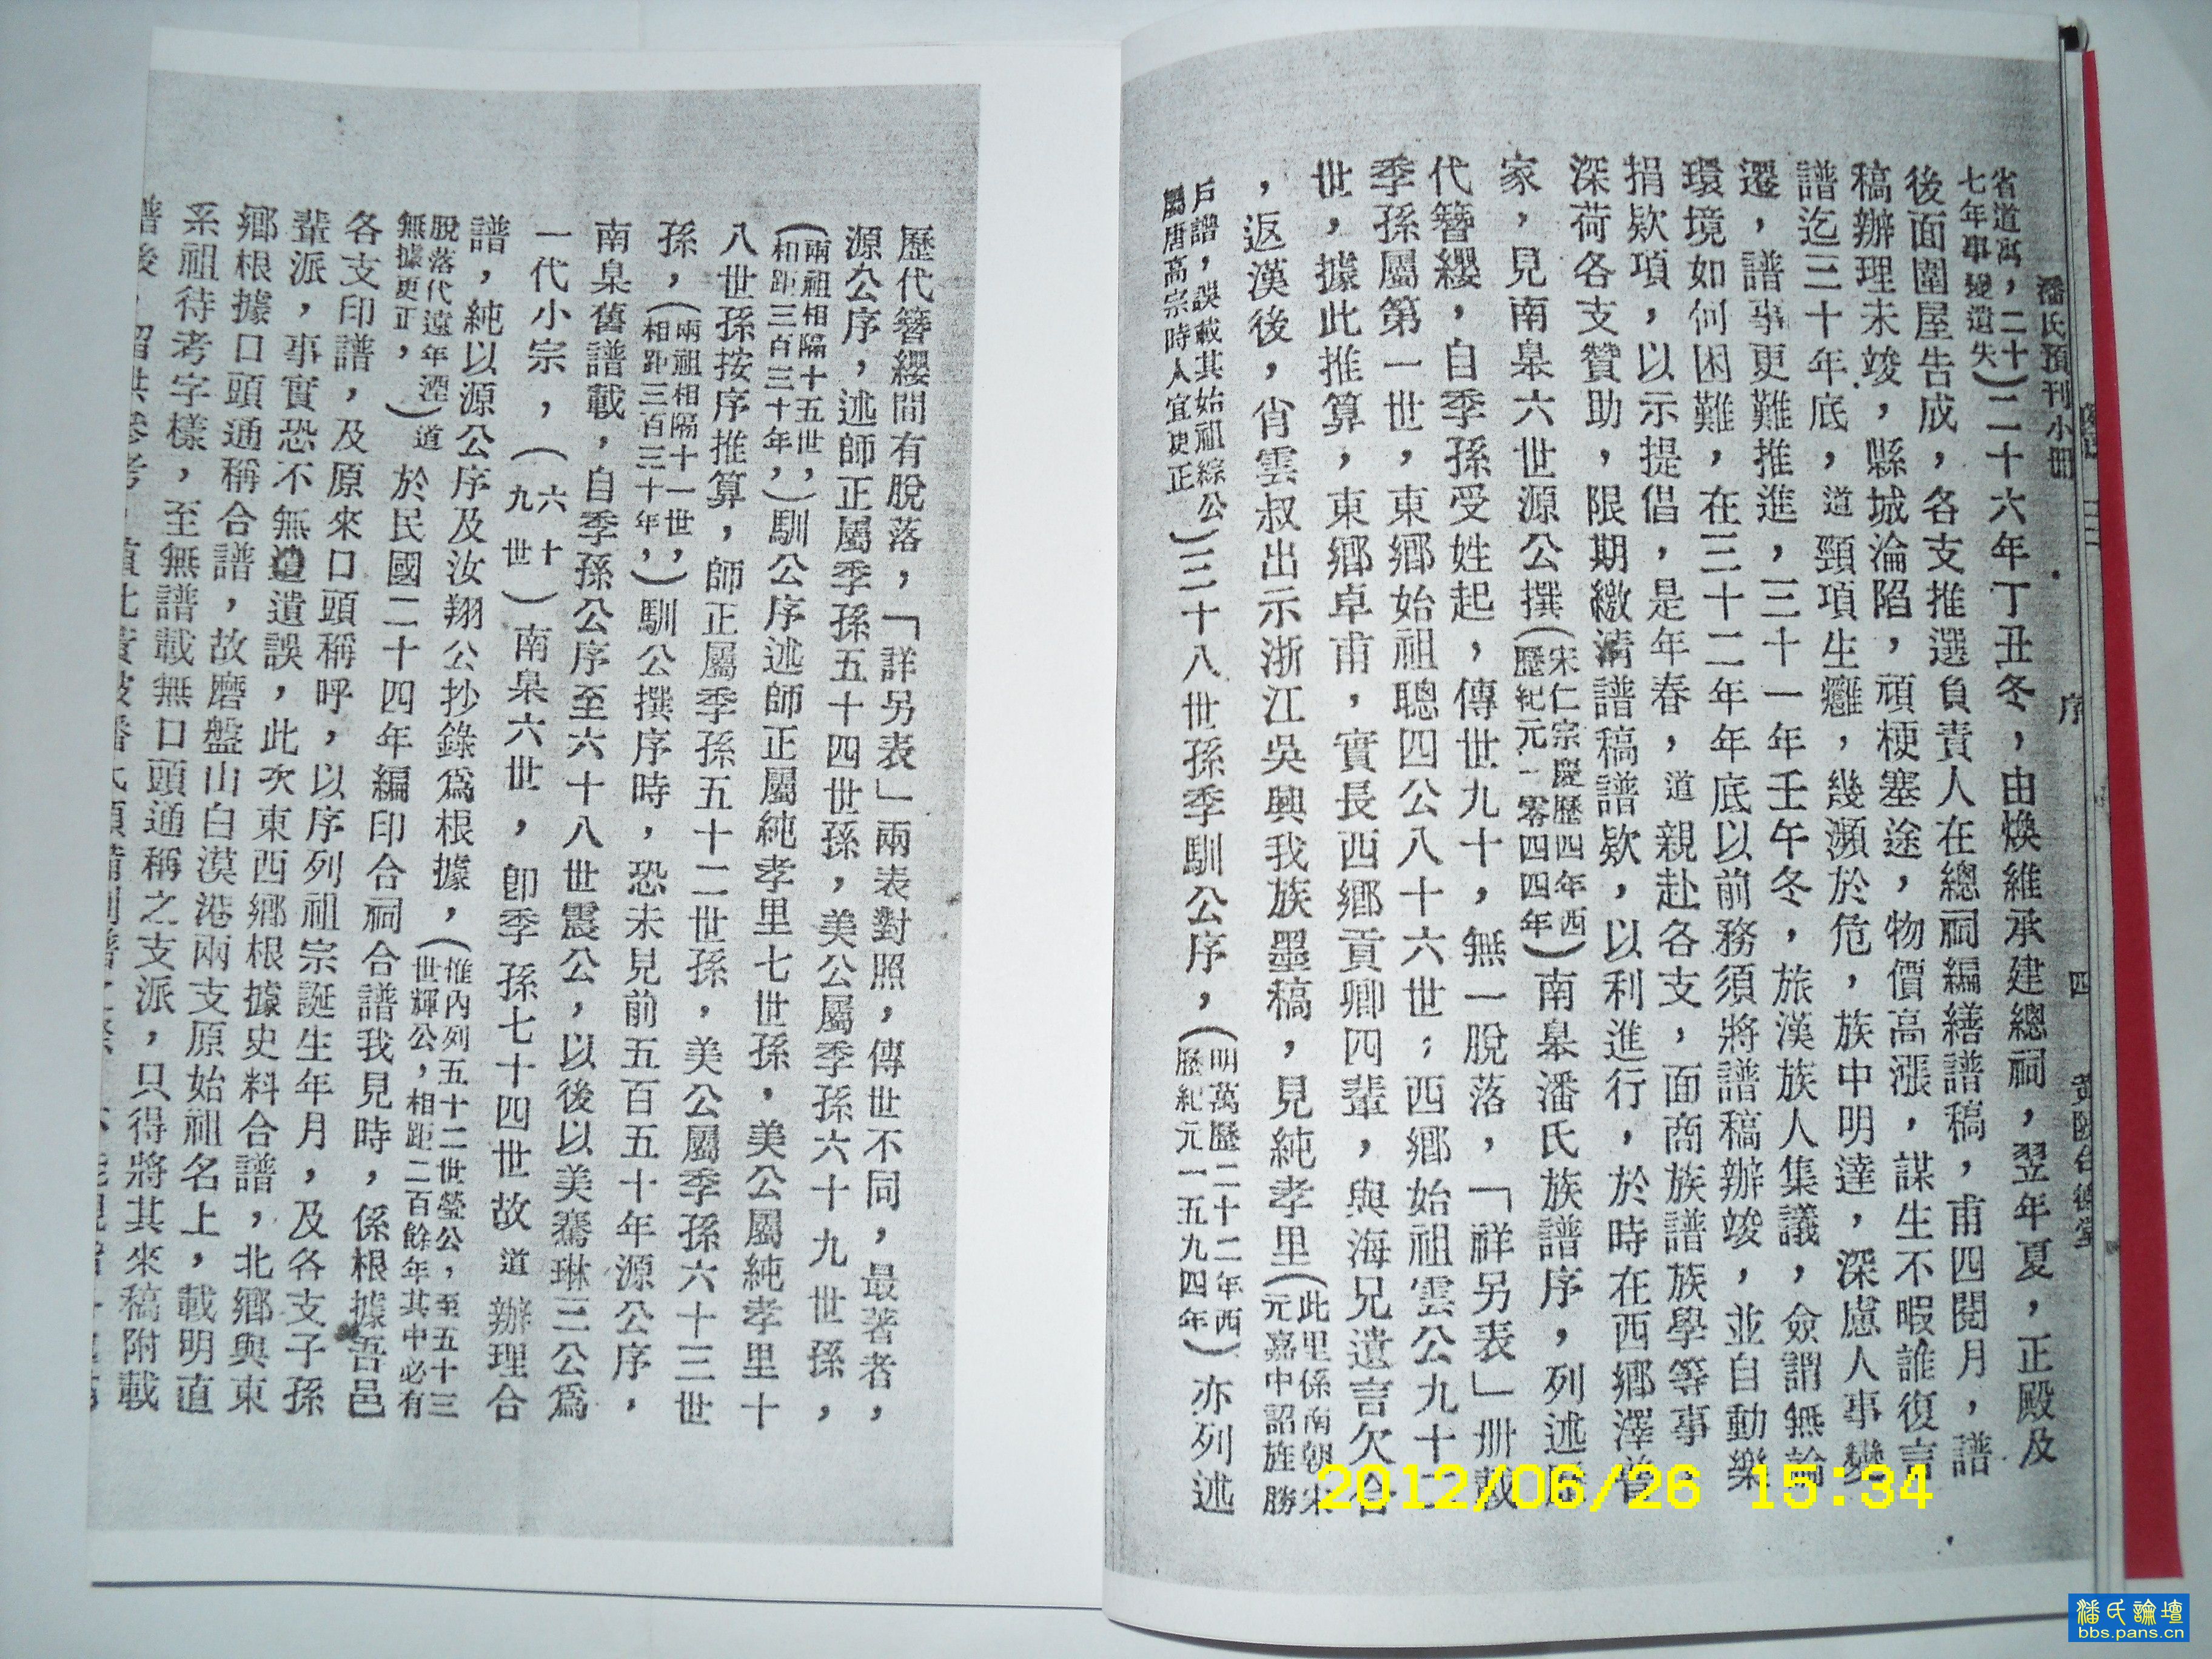 潘氏預刊小冊
序
四
省道萬，二十
七年事變遺失）二十六年丁丑冬，由煥維承建總祠，翌年夏，正殿及
後面圍屋告成，各支推選負責人在總祠編繕譜稿，甫四閱月，譜
稿辦理未竣，縣城淪陷，頑梗塞途，物價高漲，謀生不暇誰復言
譜迄三十年底，道頸項生癰，幾瀕於危，族中明達，深慮人事變
遷，譜事更難推進，三十一年壬午冬，旅漢族人集議，僉謂無論
環境如何困難，在三十二年年底以前務須將譜稿辦竣，並自動樂
捐欵項，以示提倡，是年春，道親赴各支，面商族譜族學等事，
深荷各支贊助，限期繳清譜稿譜欵，以利進行，於時在西鄉澤普
家，見南臯六世源公撰（宋仁宗慶歷四年西
歷紀元一零四四年）南臯潘氏族譜序，列述歷
代簪纓，自季孫受姓起，傳世九十，無一脫落，「祥另表」冊載
季孫屬第一世，東鄉始祖聰四公八十六世；西鄉始祖雲公九十二
世，據此推算，東鄉卓甫，實長西鄉貢卿四輩，與海兄遺言欠合
，返漢後，肖雲叔出示浙江吳興我族墨稿，見純孝里（此里係南朝宋
元嘉中詔旌勝
戶譜，誤載其始祖綜公
屬唐高宗時人宜更正）三十八世孫季馴公序，（明萬歷二十二年西
歷紀元一五九四年）亦列述
歷代簪纓間有脫落，「詳另表」兩表對照，傳世不同，最著者，
源公序，述師正屬季孫五十四世孫，美公屬季孫六十九世孫，
（兩祖相隔十五世，
相距三百三十年，）馴公序述師正屬純孝里七世孫，美公屬純孝里十
八世孫按序推算，師正屬季孫五十二世孫，美公屬季孫六十三世
孫，（兩祖相隔十一世，
相距三百三十年，）馴公撰序時，恐未見前五百五十年源公序，
南臯舊譜載，自季孫公序至六十八世震公，以後以美騫琳三公爲
一代小宗，（六十
九世）南臯六世，卽季孫七十四世故道辦理合
譜，純以源公序及汝翔公抄錄爲根據，（惟內列五十二世瑩公，至五十三
世輝公，相距二百餘年其中必有
脫落代遠年湮
無據更正，）道於民國二十四年編印合祠合譜我見時，係根據吾邑
各支印譜，及原來口頭稱呼，以序列祖宗誕生年月，及各支子孫
輩派，事實恐不無遺誤，此次東西鄉根據史料合譜，北鄉與東
鄉根據口頭通稱合譜，故磨盤山白漠港兩支原始祖名上，載明直
系祖待考字樣，至無譜載無口頭通稱之支派，只得將其來稿附載
譜後，留供參考，
2012/06/26 15:34
潘氏論壇
bbs.pans.cn